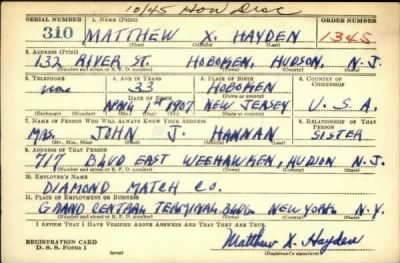 10/45 Hon Disc
SERIAL NUMBER 1. NAME (Print) ORDER NUMBER
310 MATTHEW X. HAYDEN 1345
(First) (Middle) (Last)
2. ADDRESS (Print)
132 RIVER ST. HOBOKEN, HUDSON, N.J.
(Number and street or R. F. D. number) (Town) (County) (State)
3. TELEPHONE 4. AGE IN YEARS 5. PLACE OF BIRTH 6. COUNTRY OF CITIZENSHIP
none 33 HOBOKEN
DATE OF BIRTH (Town or county)
1st 1907 NEW JERSEY U.S.A.
(Exchange) (Number) (Mo.) (Day) (Yr.) (State or country)
7. NAME OF PERSON WHO WILL ALWAYS KNOW YOUR ADDRESS 8. RELATIONSHIP OF THAT PERSON
MRS. JOHN J. HANNAN SISTER
(Mr., Mrs., Miss) (First) (Middle) (Last)
9. ADDRESS OF THAT PERSON
717 BLVD EAST WEEHAWKEN, HUDSON N.J.
(Number and street or R. F. D. number) (Town) (County) (State)
10. EMPLOYER'S NAME
DIAMOND MATCH CO.
11. PLACE OF EMPLOYMENT OR BUSINESS
GRAND CENTRAL TERMINAL BLDG. NEW YORK. N.Y.
(Number and street or R. F. D. number) (Town) (County) (State)
I AFFIRM THAT I HAVE VERIFIED ABOVE ANSWERS AND THAT THEY ARE TRUE.
REGISTRATION CARD
D. S. S. Form 1 (over) Matthew X. Hayden
(Registrant's signature)